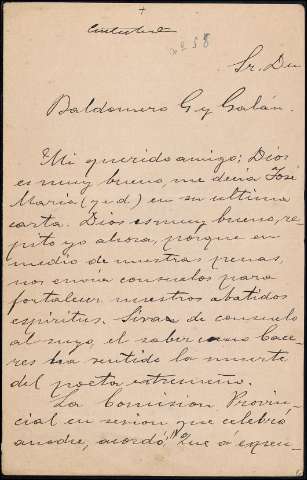 +
Contestada
nº 58
Sr. Dn
Baldomero G y Galán.
Mi querido amigo: Dios
es muy bueno, me decía José
María (q. e. d) en su última
carta. Dios es muy bueno, re-
pito yo ahora, porque en
medio de nuestras penas,
nos envía consuelos para
fortalecer nuestros abatidos
espíritus. Sirva de consuelo
al suyo, el saber como Cáce-
res ha sentido la muerte
del poeta extremeño.
La Comisión Provin-
cial en sesión que celebró
anoche, acordó: 1º Que a expen-